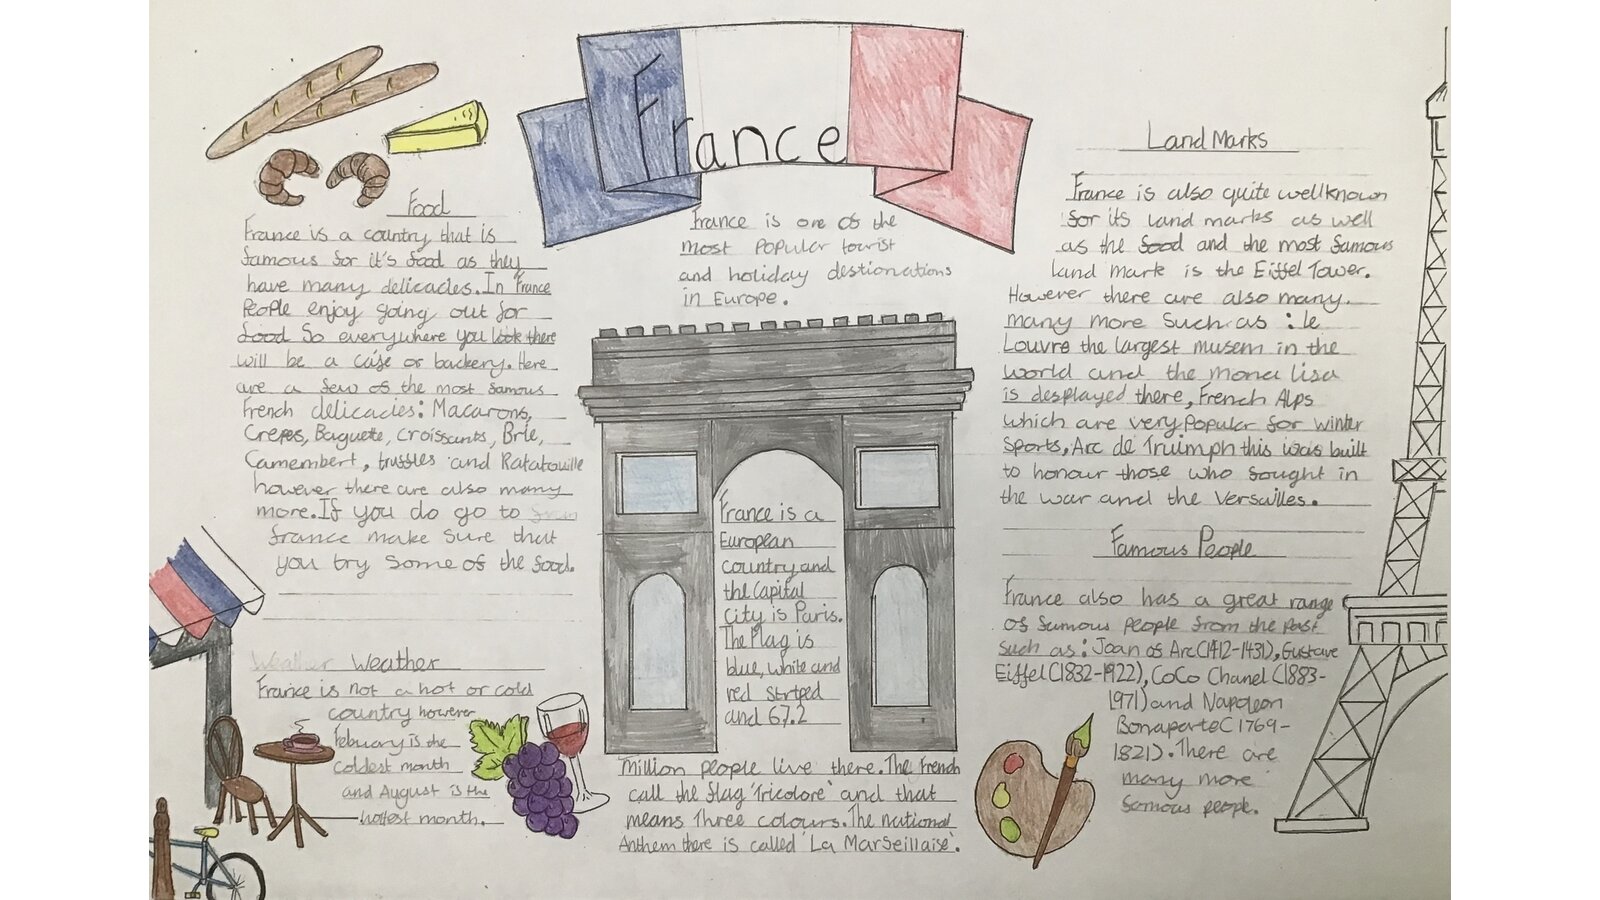 France
France is one of the
most Popular tourist
and holiday destionations
in Europe.
Food
France is a country that is
famous for it's food as they
have many delicacies. In France
People enjoy going out for
food So everywhere you look there
will be a cafe or backery. Here
are a few of the most famous
French delicacies: Macarons,
Crepes, Baguette, Croissants, Brie,
Camembert, truffles and Ratatouille
however there are also many
more. If you do go to
france make sure that
you try some of the food.
Weather Weather
France is not a hot or cold
country however
Febuary is the
coldest month
and August is the
hottest month.
France is a
European
country and
the Capital
City is Paris.
The flag is
blue, white and
red striped
and 67.2
million people live there. The French
call the flag 'Tricolore' and that
means Three colours. The national
Anthem there is called 'La Marseillaise'.
Land Marks
France is also quite wellknown
for its land marks as well
as the food and the most famous
land mark is the Eiffel Tower.
However there are also many.
many more Such as : le
Louvre the largest musem in the
world and the mona lisa
is desplayed there, French Alps
which are very Popular for winter
Sports, Arc de Truimph this was built
to honour those who fought in
the war and the Versailles.
Famous People
France also has a great range
of famous people from the Past
such as: Joan of Arc (1412-1431), Gustave
Eiffel (1832-1922), CoCo Chanel (1883-
1971) and Napoleon
Bonaparte (1769-
1821). There are
many more
famous people.